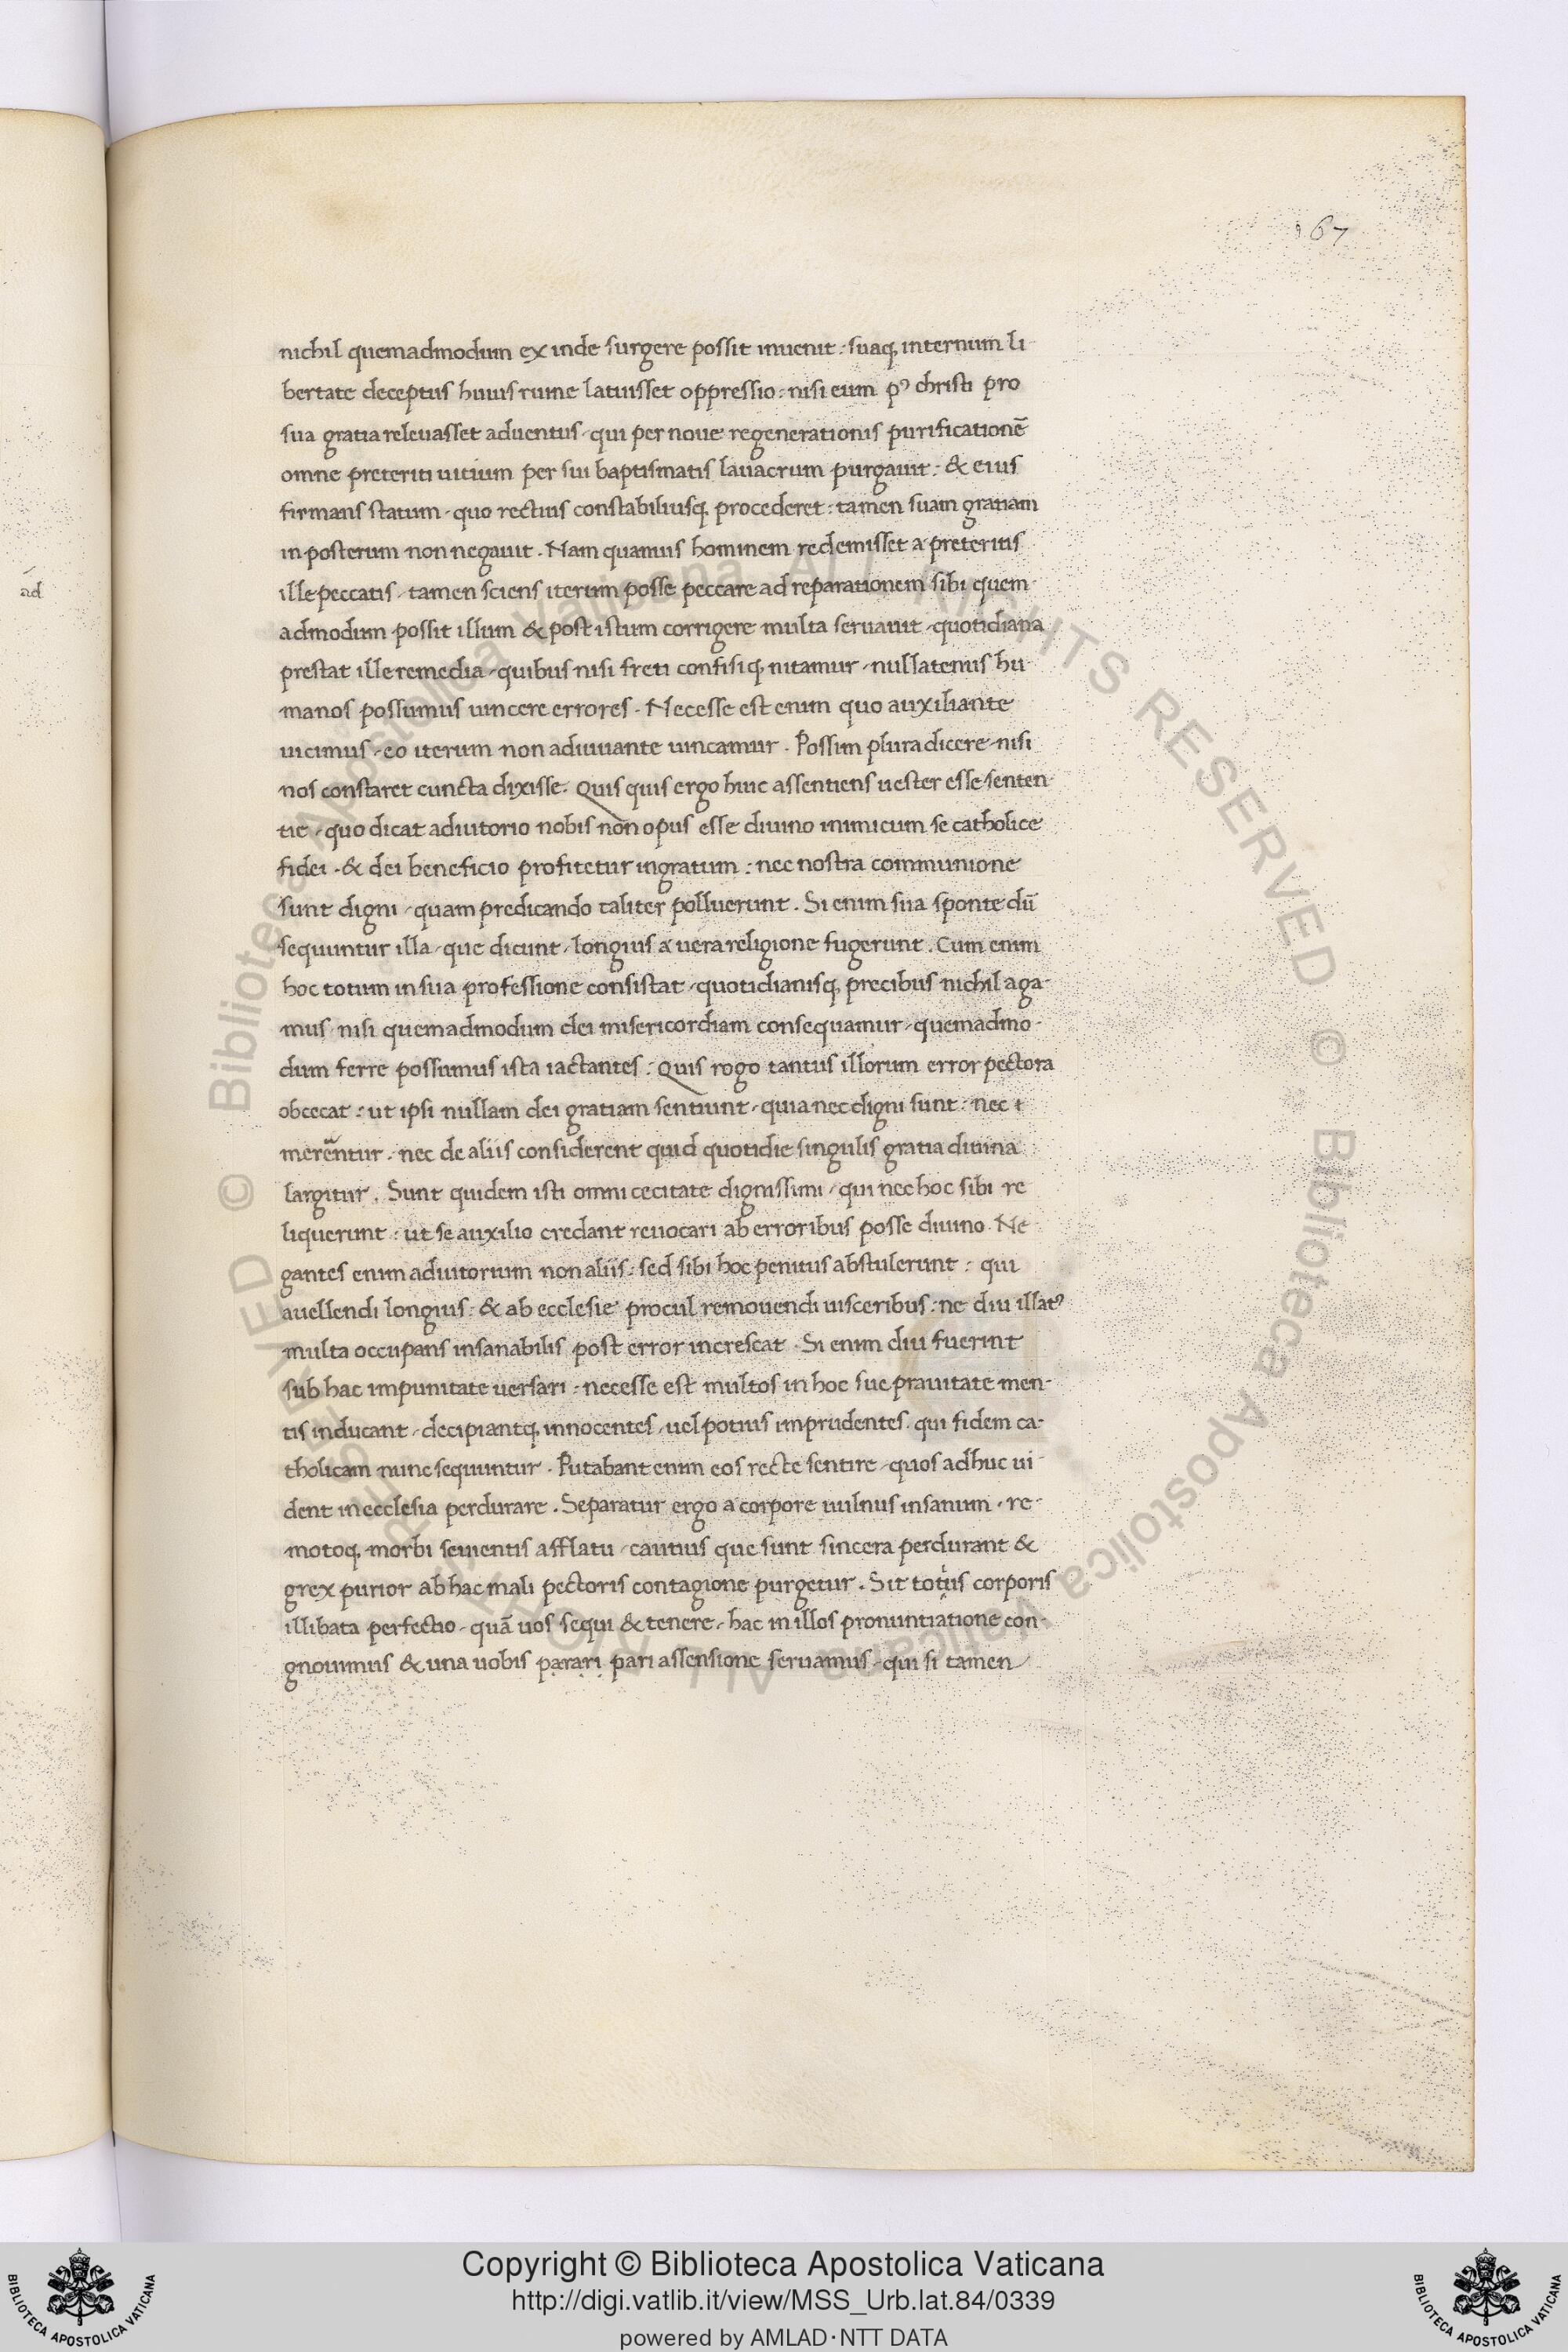 167
nichil quemadmodum ex inde surgere possit inuenit : suaq, internum li-
bertate deceptus huius ruine latuisset oppressio : nisi eum pꝰ christi pro
sua gratia releuasset aduentus, qui per noue regenerationis purificationē
omne preteriti uitium per sui baptismatis lauacrum purgauit : & eius
firmans statum, quo rectius constabiliusq, procederet : tamen suam gratiam
in posterum non negauit. Nam quamuis hominem redemisset a preteritis
ille peccatis, tamen sciens iterum posse peccare ad reparationem sibi quem-
admodum possit illum & post istum corrigere multa seruauit, quotidiana
prestat ille remedia, quibus nisi freti confisiq, nitamur, nullatenus hu-
manos possumus uincere errores. Necesse est enim quo auxiliante
uicimus, eo iterum non adiuuante uincamur. Possim plura dicere, nisi
nos constaret cuncta dixisse. Quis quis ergo huic assentiens uester esse senten-
tie, quo dicat adiutorio nobis non opus esse diuino inimicum se catholice
fidei, & dei beneficio profitetur ingratum : nec nostra communione
sunt digni, quam predicando taliter polluerunt. Si enim sua sponte dū
sequuntur illa, que dicunt, longius a uera religione fugerunt. Cum enim
hoc totum in sua professione consistat, quotidianisq, precibus nichil aga-
mus nisi quemadmodum dei misericordiam consequamur, quemadmo-
dum ferre possumus ista iactantes : Quis rogo tantus illorum error pectora
obcecat : ut ipsi nullam dei gratiam sentiunt, quia nec digni sunt : nec
merentur, nec de aliis considerent quid quotidie singulis gratia diuina
largitur. Sunt quidem isti omni cecitate dignissimi, qui nec hoc sibi re
liquerunt : ut se auxilio credant reuocari ab erroribus posse diuino. Ne
gantes enim adiutorium non aliis : sed sibi hoc penitus abstulerunt : qui
auellendi longius : & ab ecclesie procul remouendi uisceribus : ne diu illatꝰ
multa occupans insanabilis post error increscat. Si enim diu fuerint
sub hac impunitate uersari : necesse est multos in hoc sue prauitate men-
tis inducant, decipiantq, innocentes, uel potius imprudentes, qui fidem ca-
tholicam nunc sequuntur. Putabant enim eos recte sentire, quos adhuc ui-
dent in ecclesia perdurare. Separatur ergo a corpore uulnus insanum, re-
motoq, morbi seuientis afflatu, cautius que sunt sincera perdurant &
grex purior ab hac mali pectoris contagione purgetur. Sit totius corporis
illibata perfectio, quā uos sequi & tenere, hac in illos pronuntiatione con-
gnouimus & una uobis parari pari assensione seruamus, qui si tamen
ad
Copyright © Biblioteca Apostolica Vaticana
http://digi.vatlib.it/view/MSS_Urb.lat.84/0339
powered by AMLAD·NTT DATA
BIBLIOTECA APOSTOLICA VATICANA
BIBLIOTECA APOSTOLICA VATICANA